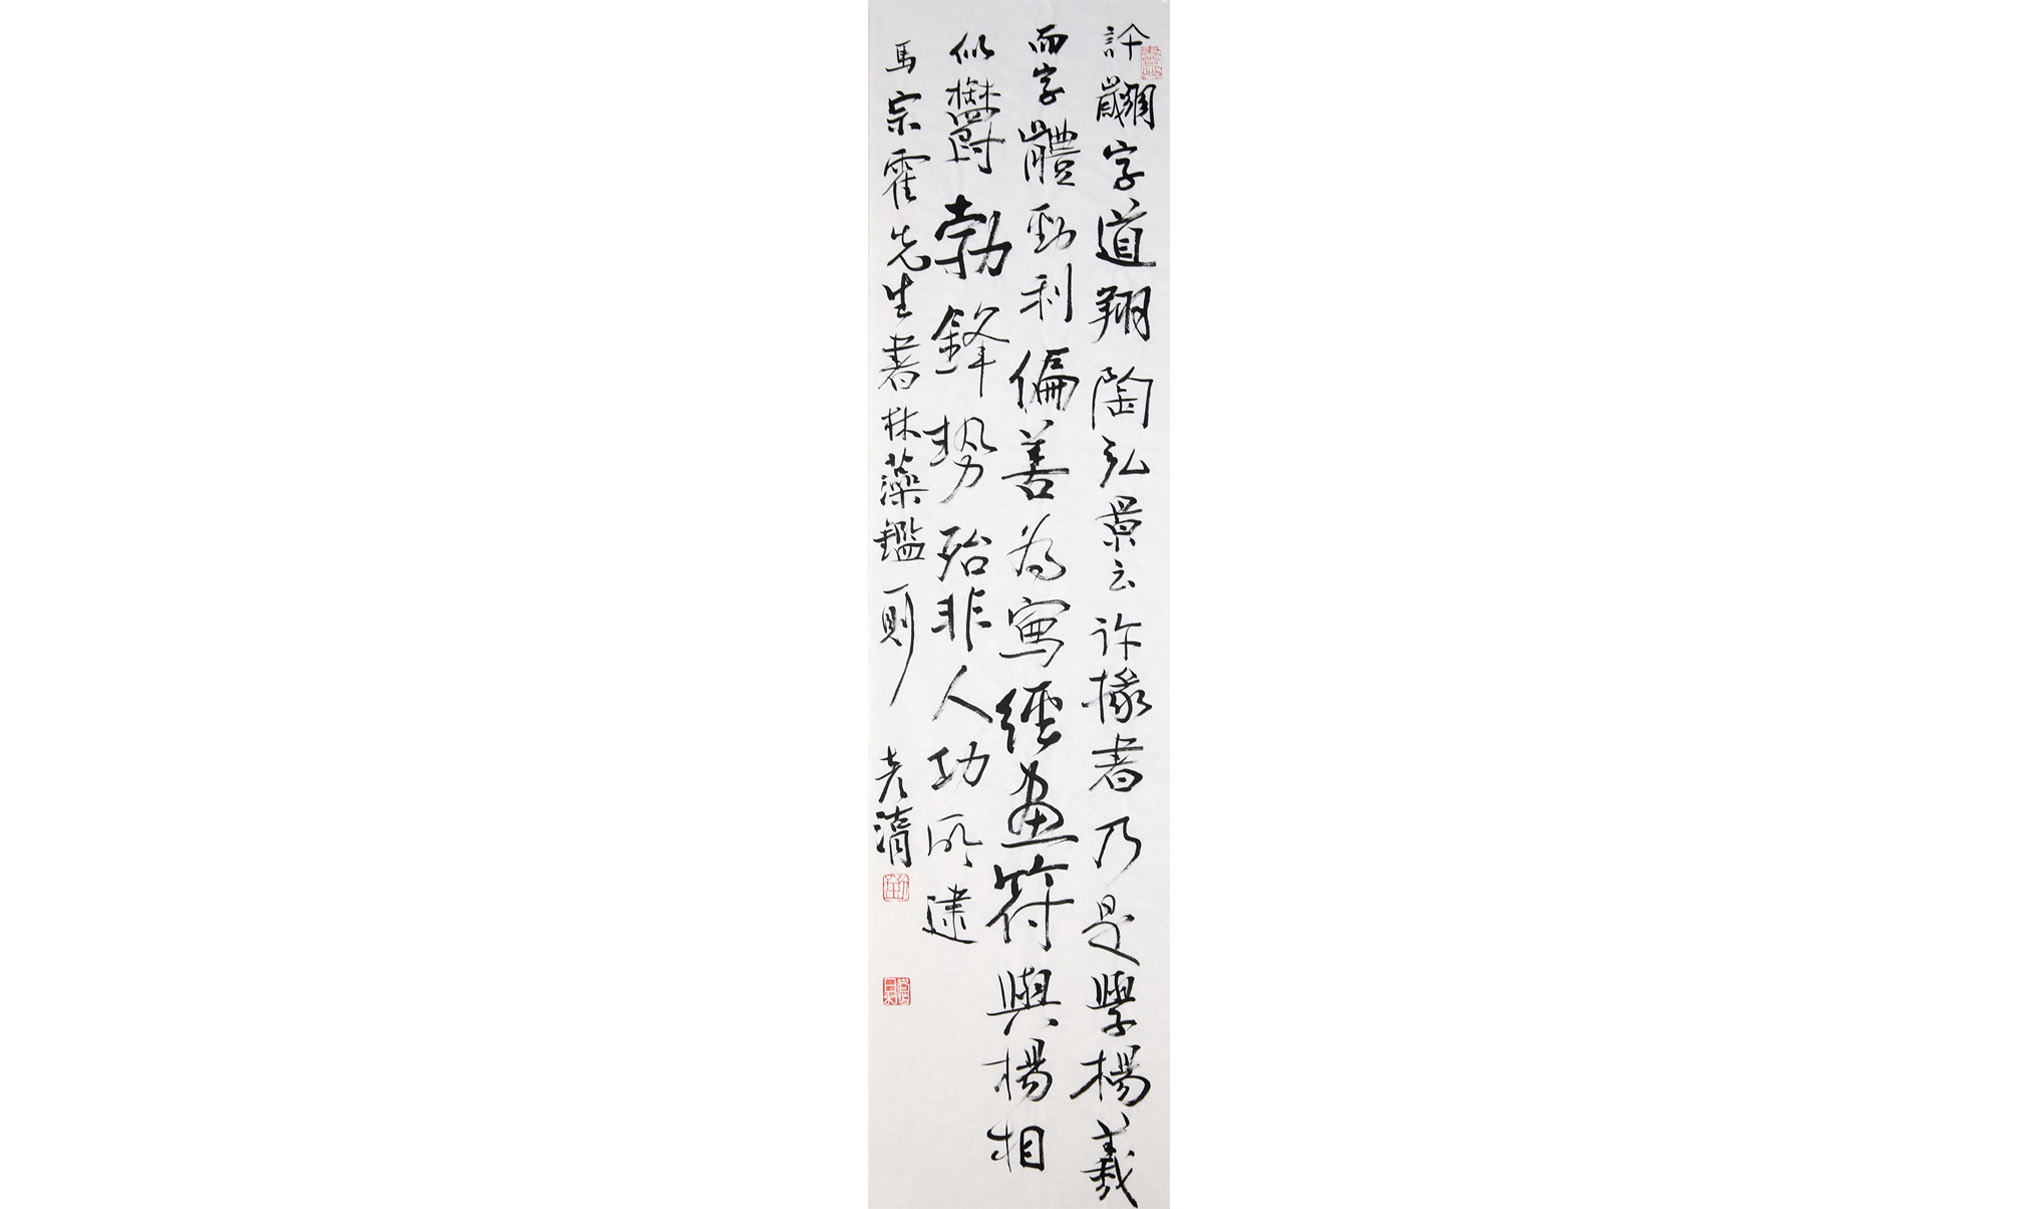 許翽字道翔陶弘景云許掾書乃是學楊羲
而字體勁利偏善為寫經畫符與楊相
似欝勃鋒勢殆非人功所逮
馬宗霍先生書林藻鑑一則
老淸